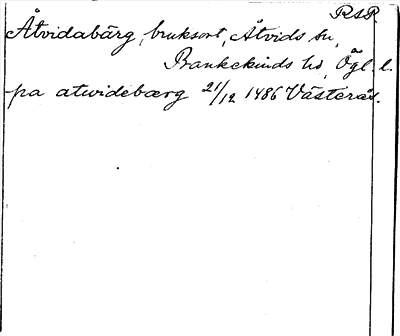 RSP.
Åtvidabärg, bruksort, Åtvids sn,
Bankekinds hd, Ögl. l.
pa atwidebærg 21/12 1486 Västerås.